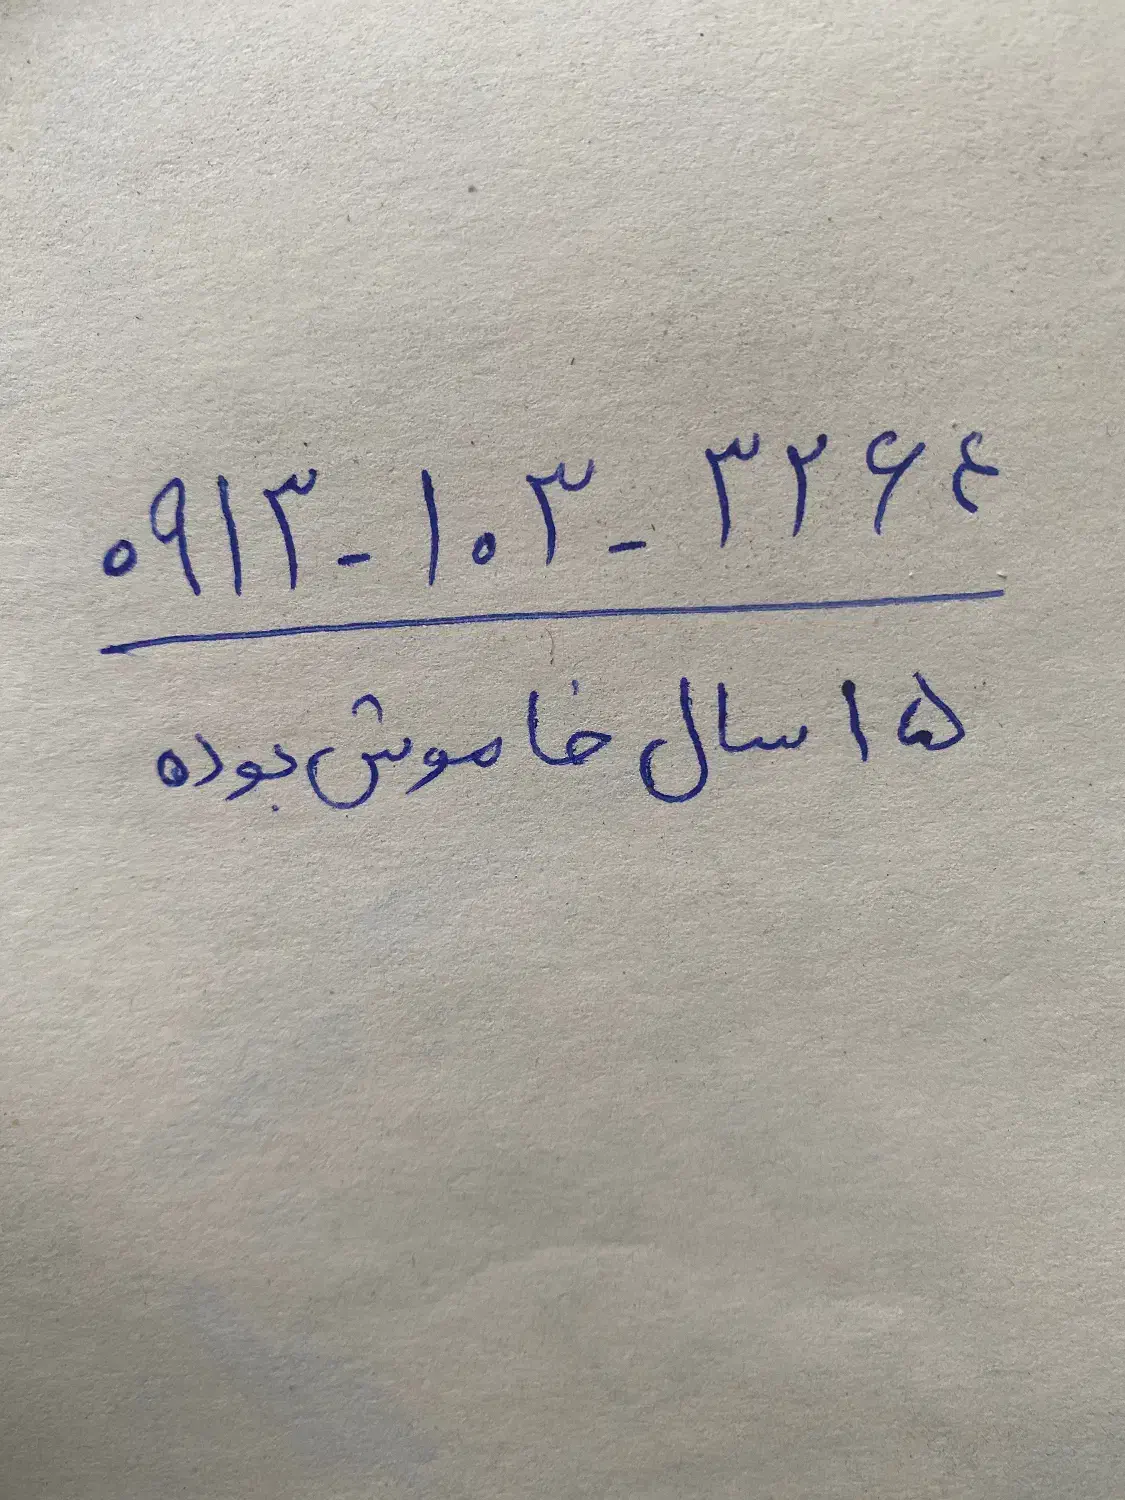 ۰۹۱۳-۱۰۳-۳۲۶۴
۱۵ سال خاموش بوده